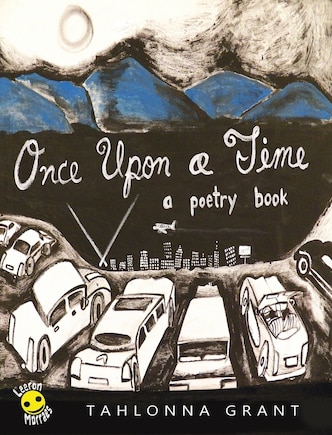 Once Upon a Time
a poetry book
Leeron
Morraes
TAHLONNA GRANT